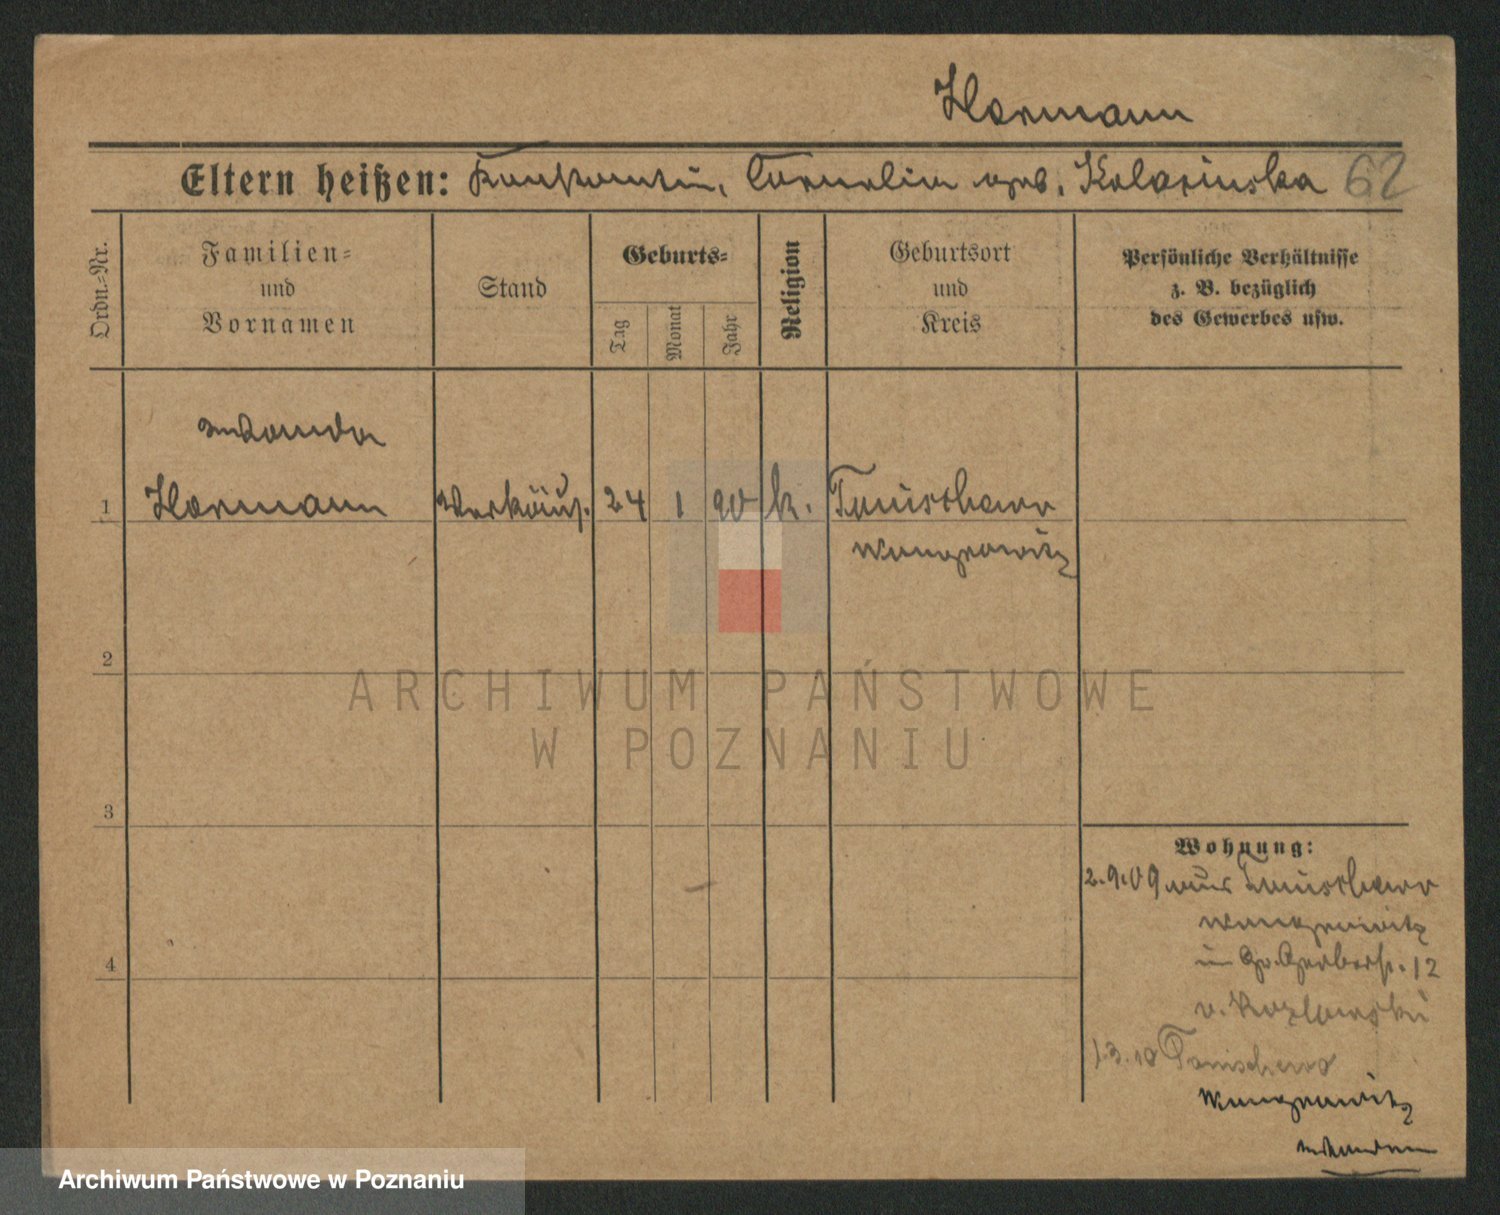 Hormann
Eltern heißen: Konstantin, Cornelia geb. Kolasinska 62
Ordn.=Nr.
Familien=
und
Vornamen
Stand
Geburts=
Tag
Monat
Jahr
Religion
Geburtsort
und
Kreis
Persönliche Verhältnisse
z. B. bezüglich
des Gewerbes usw.
Wanda
1 Hormann Verkäuf. 24 1 90 k.
Wongrowitz
2
3
4
Wohnung:
2.9.09 aus
Wongrowitz
in Gr. Gerberst. 12
v. Kozlowski
1.3.10
Wongrowitz
ARCHIWUM PAŃSTWOWE
W POZNANIU
Archiwum Państwowe w Poznaniu